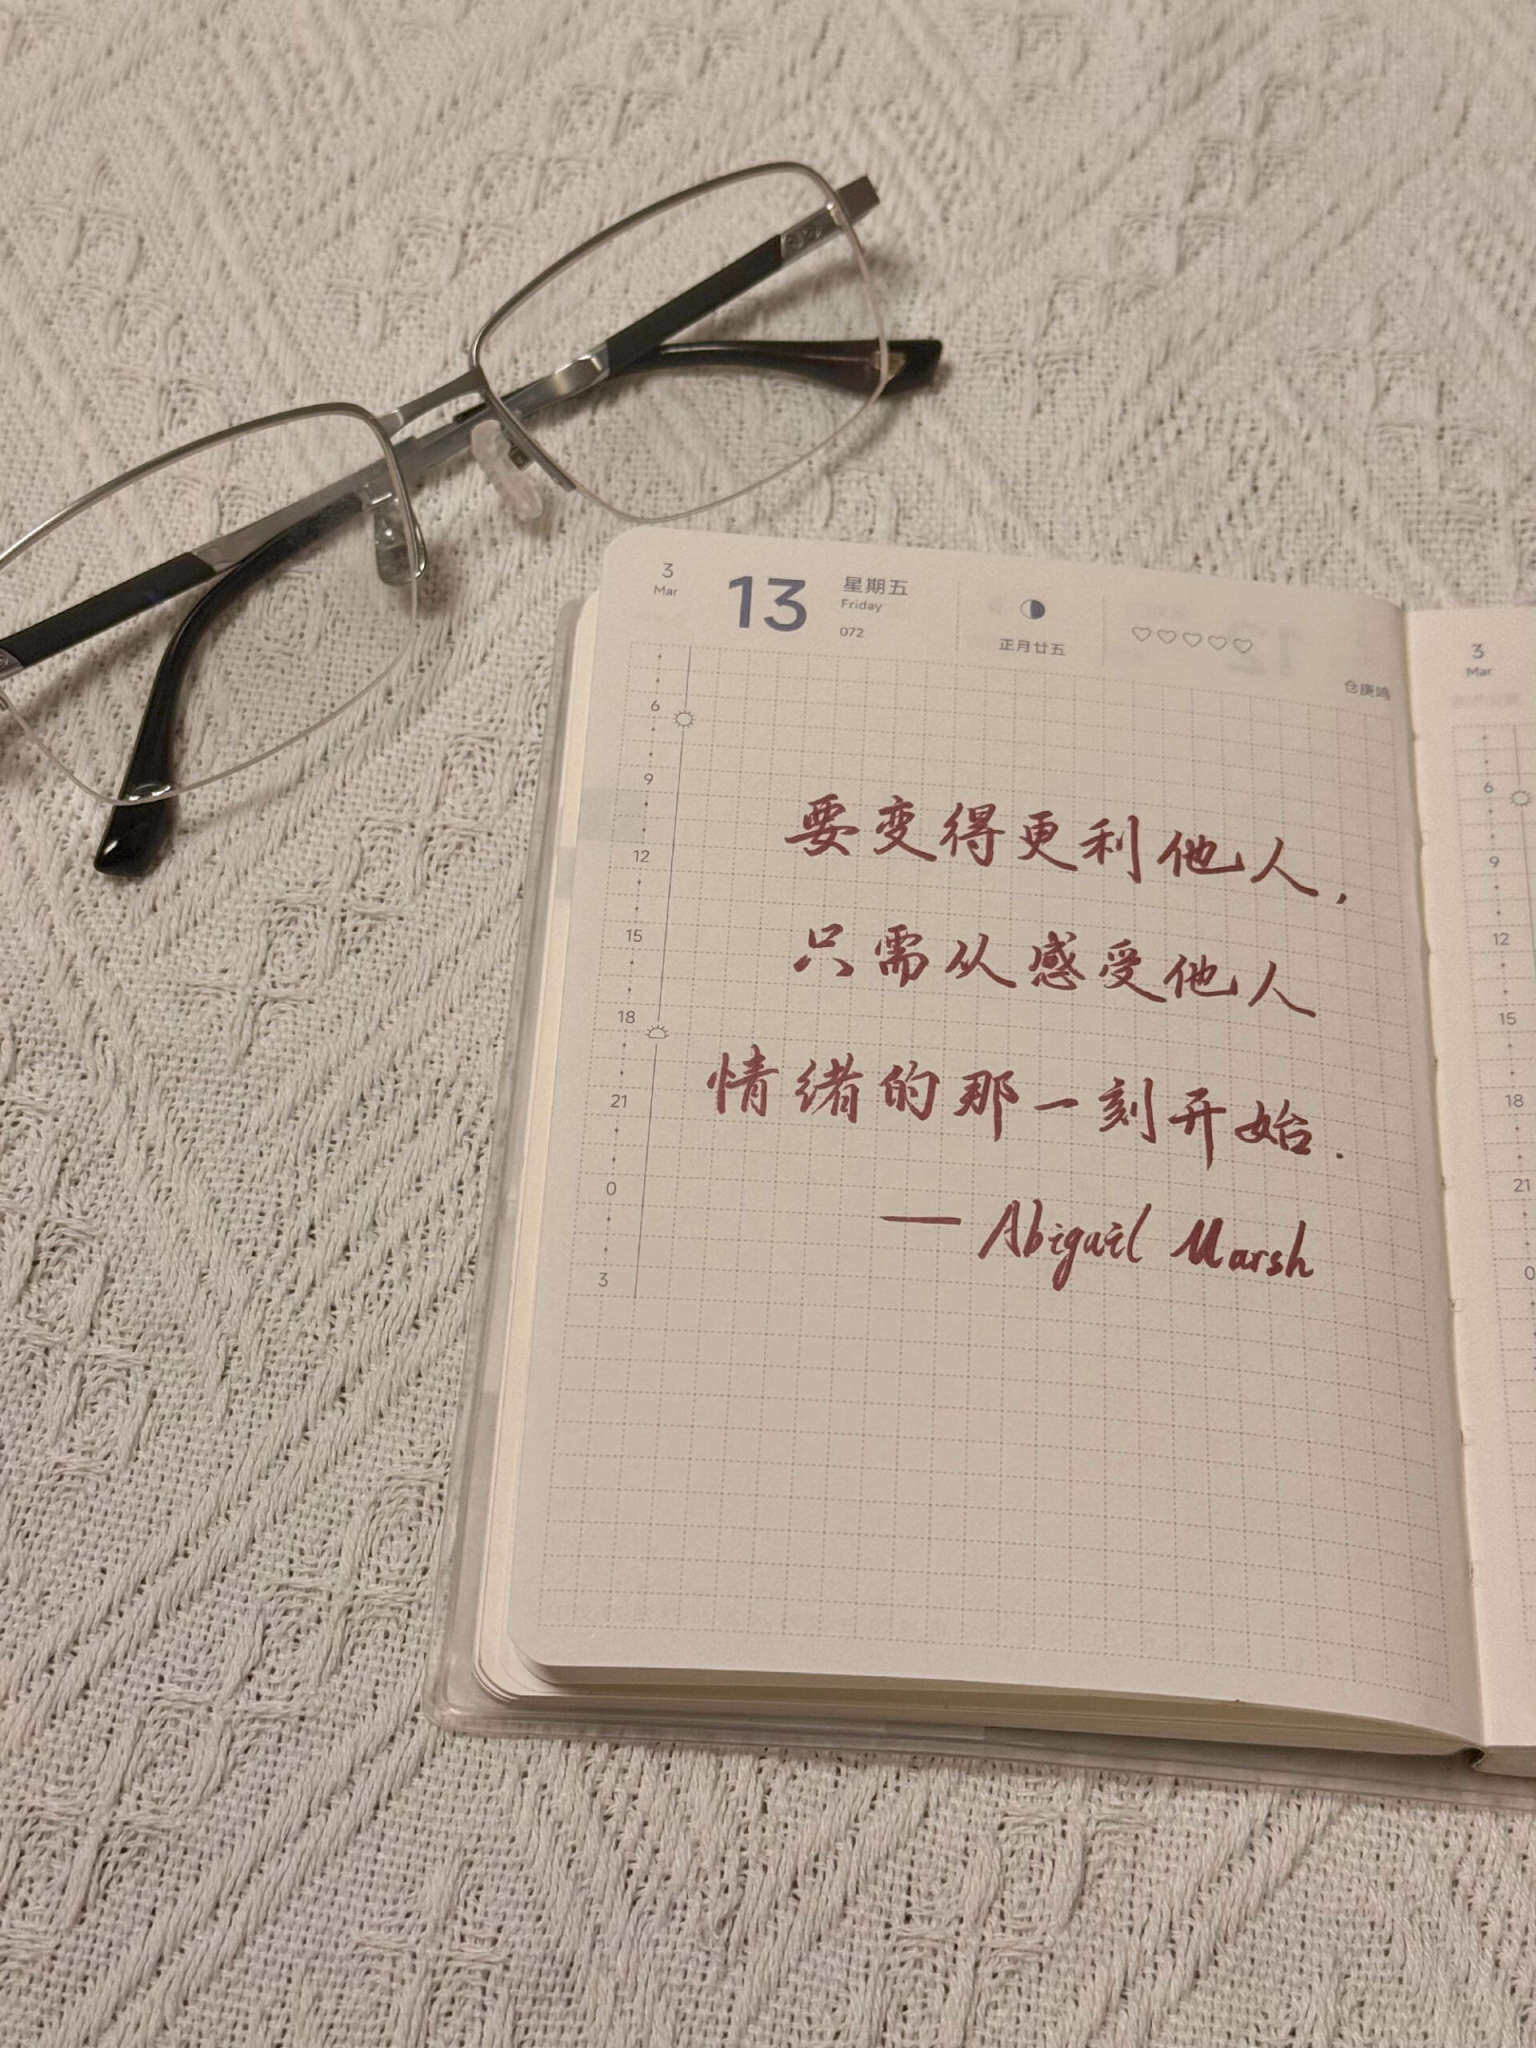 3
Mar
13
星期五
Friday
072
正月廿五
仓庚鸣
6
9
12
15
18
21
0
3
要变得更利他人，
只需从感受他人
情绪的那一刻开始.
— Abigail Marsh
3
Mar
6
9
12
15
18
21
0